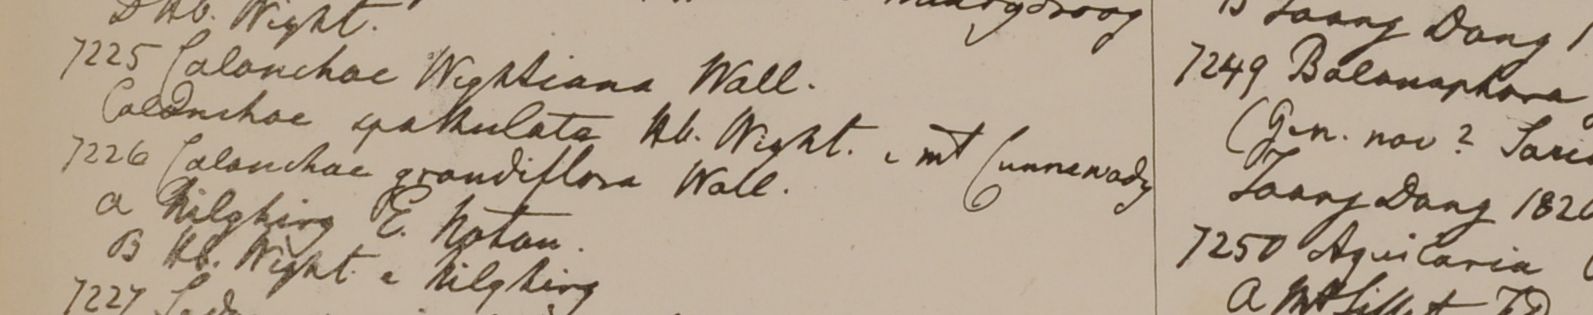 D Hb. Wight.
7225 Calanchae Wightiana Wall.
Calanchae spathulata Hb. Wight. e mt Cunnawady
7226 Calanchae grandiflora Wall.
a Nilghiry E. Noton.
B Hb. Wight. e Nilghiry
7227
B Laong Dong
7249 Balanophora
(Gen. nov?
Laong Dong 182
7250 Aquilaria
a Mt Sillet